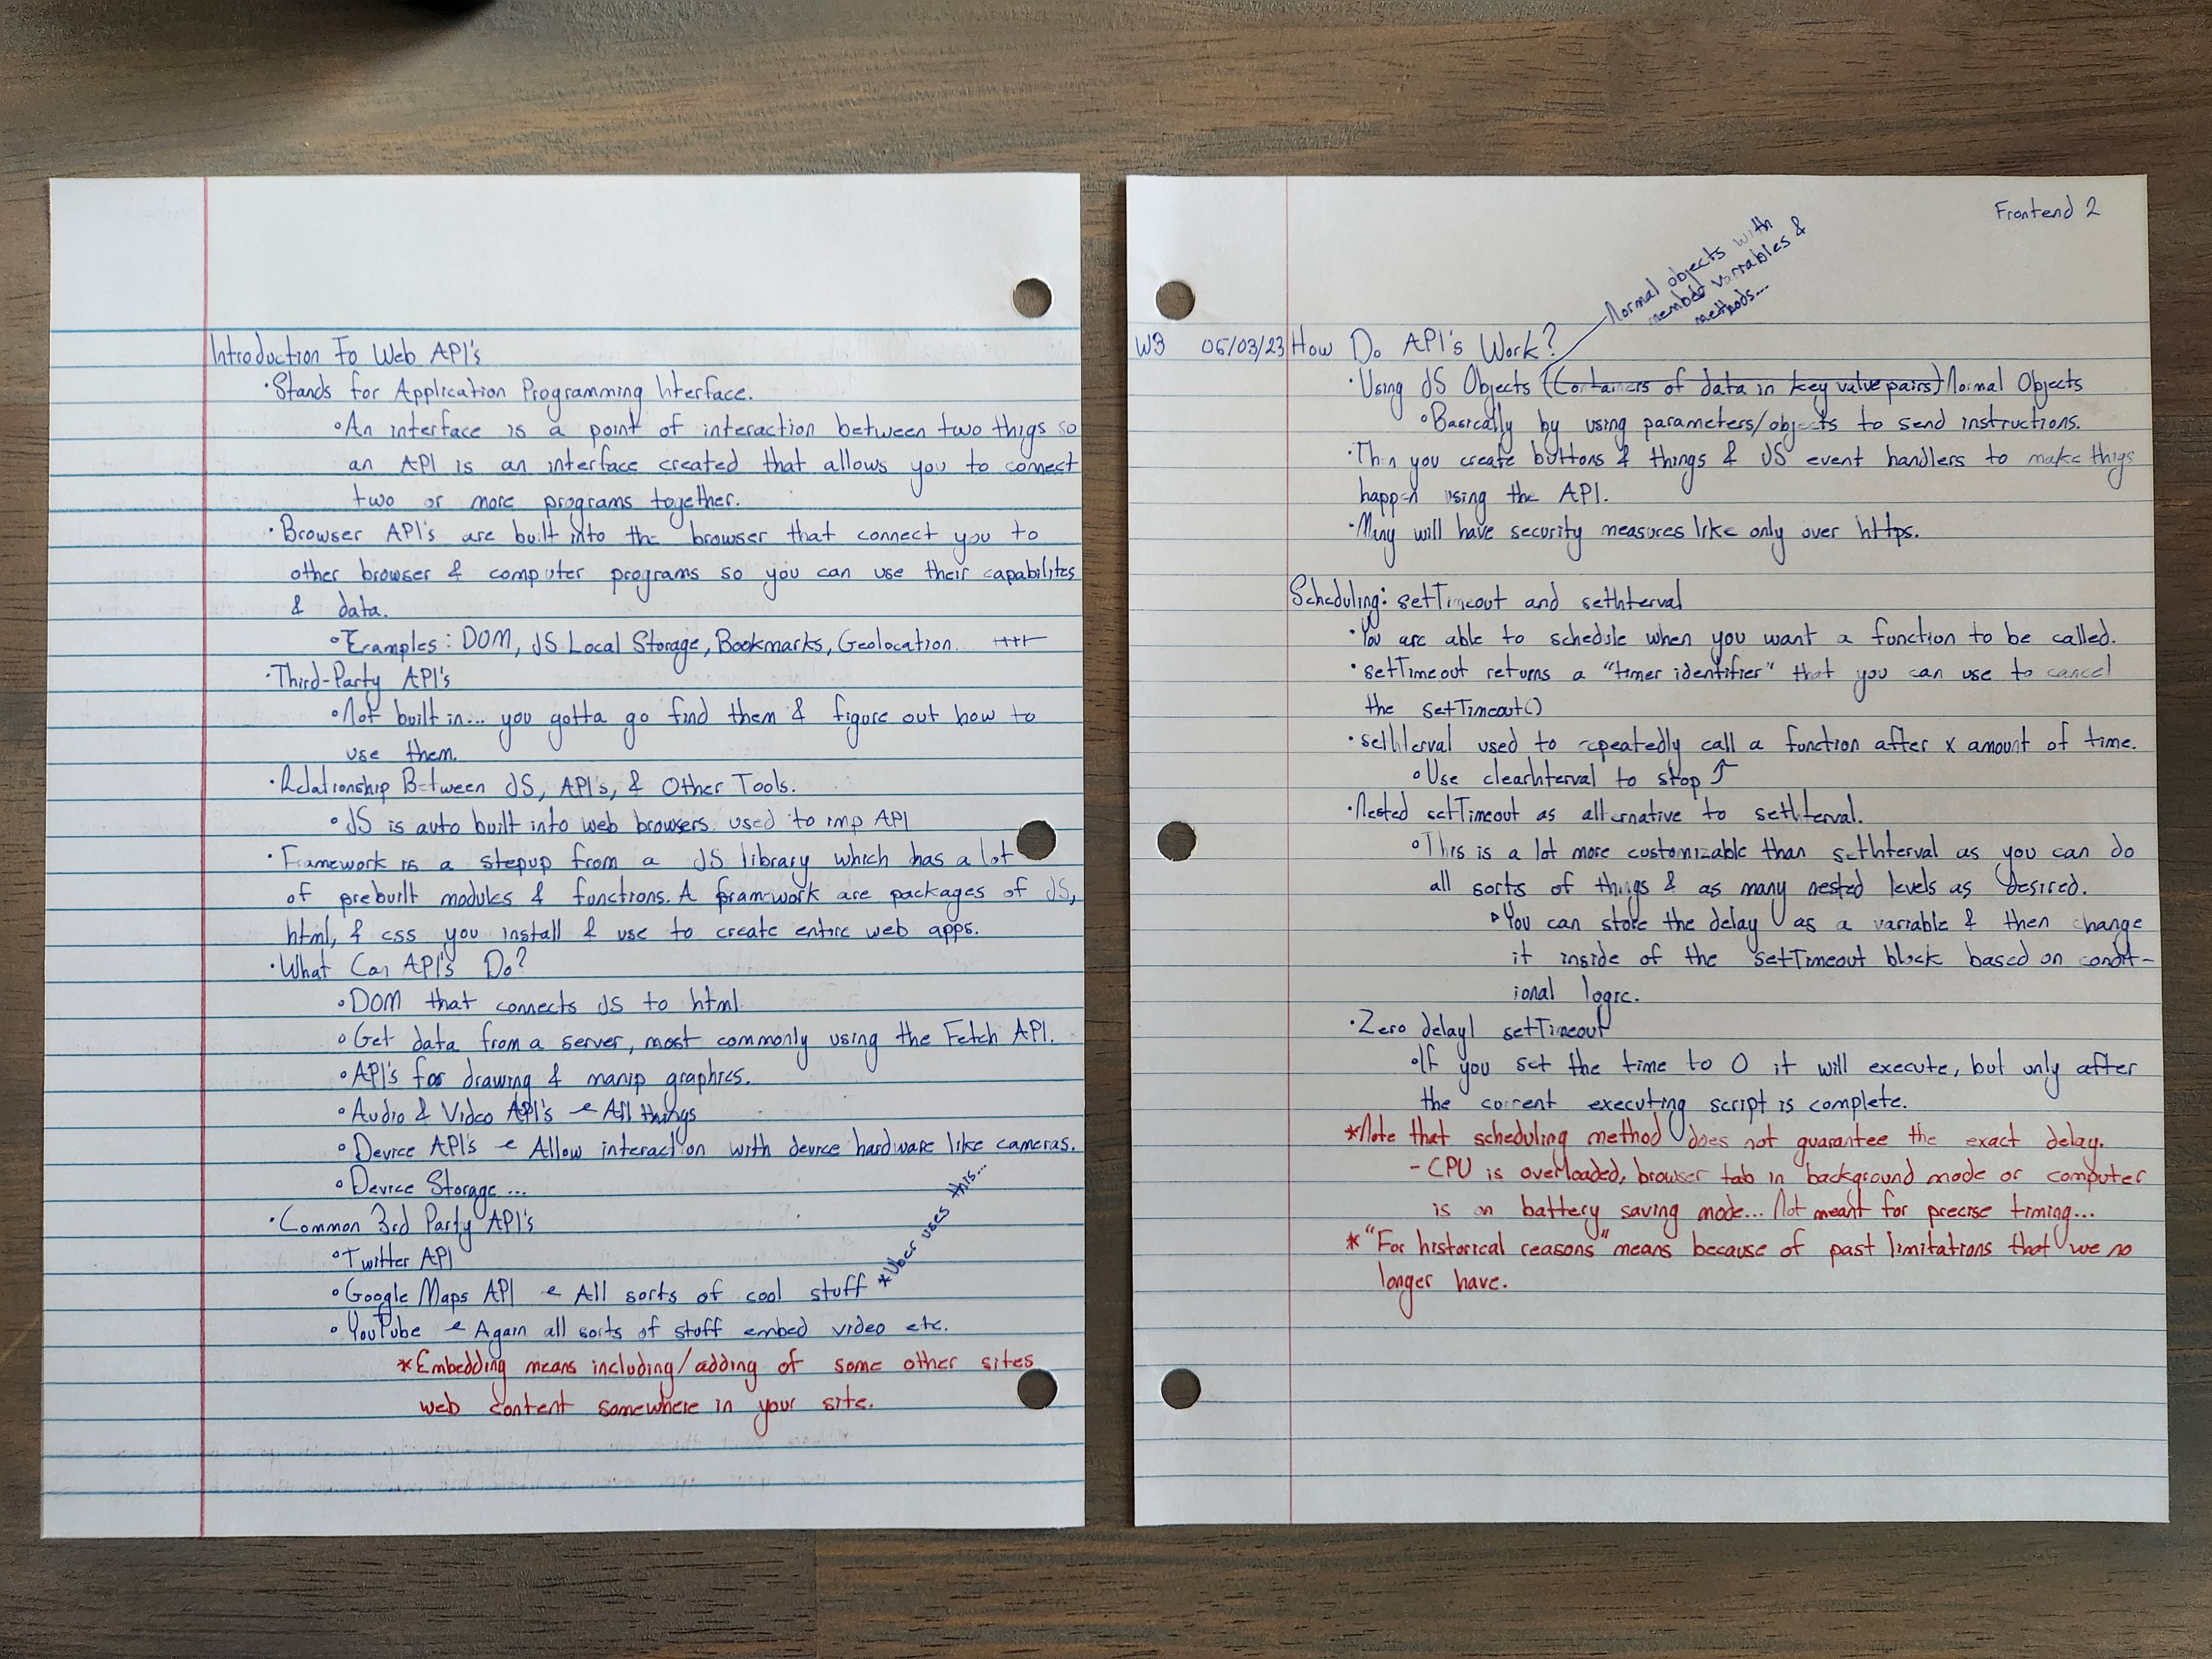 Introduction To Web API's
• Stands for Application Programming Interface.
• An interface is a point of interaction between two thigs so
an API is an interface created that allows you to connect
two or more programs together.
• Browser API's are built into the browser that connect you to
other browser & computer programs so you can use their capabilites
& data.
• Examples: DOM, JS Local Storage, Bookmarks, Geolocation... +++
• Third-Party API's
• Not built in... you gotta go find them & figure out how to
use them.
• Relationship Between JS, API's, & Other Tools.
• JS is auto built into web browsers used to imp API
• Framework is a stepup from a JS library which has a lot
of prebuilt modules & functions. A framework are packages of JS,
html, & css you install & use to create entire web apps.
• What Can API's Do?
• DOM that connects JS to html.
• Get data from a server, most commonly using the Fetch API.
• API's for drawing & manip graphics.
• Audio & Video API's → All things
• Device API's → Allow interaction with device hardware like cameras.
• Device Storage...
• Common 3rd Party API's
• Twitter API
• Google Maps API → All sorts of cool stuff *Uber uses this...
• YouTube → Again all sorts of stuff embed video etc.
* Embedding means including/adding of some other sites
web content somewhere in your site.
Frontend 2
W3 05/03/23 How Do API's Work?
Normal objects with &
member variables &
methods...
• Using JS Objects (Containers of data in key value pairs) Normal Objects
• Basically by using parameters/objects to send instructions.
• Then you create buttons & things & JS event handlers to make thigs
happen using the API.
• Many will have security measures like only over https.
Scheduling: setTimeout and setInterval
• You are able to schedule when you want a function to be called.
• setTimeout returns a "timer identifier" that you can use to cancel
the setTimeout()
• setInterval used to repeatedly call a function after x amount of time.
• Use clearInterval to stop ↑
• Nested setTimeout as alternative to setInterval.
• This is a lot more customizable than setInterval as you can do
all sorts of things & as many nested levels as desired.
• You can store the delay as a variable & then change
it inside of the setTimeout block based on condit-
ional logic.
• Zero delay setTimeout
• If you set the time to 0 it will execute, but only after
the corent executing script is complete.
* Note that scheduling method does not guarantee the exact delay.
- CPU is overloaded, browser tab in background mode or computer
is on battery saving mode... Not meant for precise timing...
* "For historical reasons" means because of past limitations that we no
longer have.